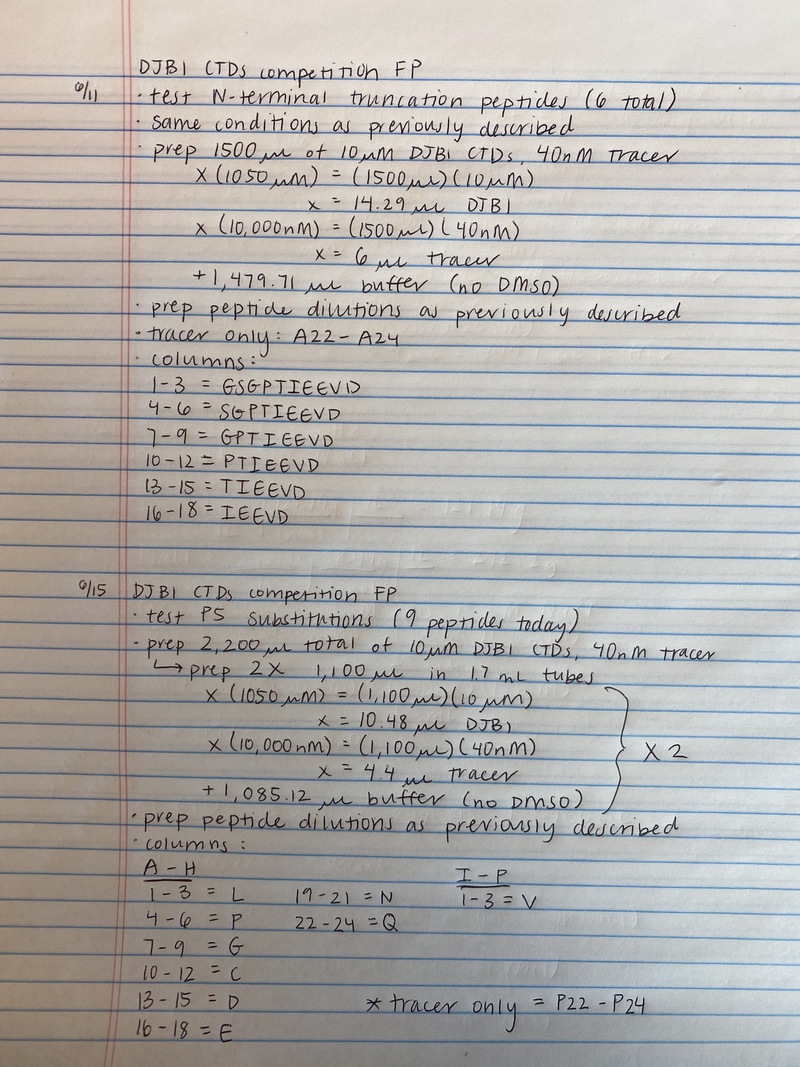 DJB1 CTDs competition FP
6/11 · test N-terminal truncation peptides (6 total)
· same conditions as previously described
· prep 1500 µL of 10 µM DJB1 CTDs, 40nM tracer
x (1050 µM) = (1500 µL)(10 µM)
x = 14.29 µL DJB1
x (10,000nM) = (1500 µL)(40nM)
x = 6 µL tracer
+ 1,479.71 µL buffer (no DMSO)
· prep peptide dilutions as previously described
· tracer only: A22-A24
· columns:
1-3 = GSGPTIEEVD
4-6 = SGPTIEEVD
7-9 = GPTIEEVD
10-12 = PTIEEVD
13-15 = TIEEVD
16-18 = IEEVD
6/15 DJB1 CTDs competition FP
· test P5 substitutions (9 peptides today)
· prep 2,200 µL total of 10 µM DJB1 CTDs, 40nM tracer
↳ prep 2X 1,100 µL in 1.7 mL tubes
x (1050 µM) = (1,100 µL)(10 µM)
x = 10.48 µL DJB1
x (10,000nM) = (1,100 µL)(40nM) X 2
x = 4.4 µL tracer
+ 1,085.12 µL buffer (no DMSO)
· prep peptide dilutions as previously described
· columns:
A-H I-P
1-3 = L 19-21 = N 1-3 = V
4-6 = P 22-24 = Q
7-9 = G
10-12 = C
13-15 = D * tracer only = P22-P24
16-18 = E